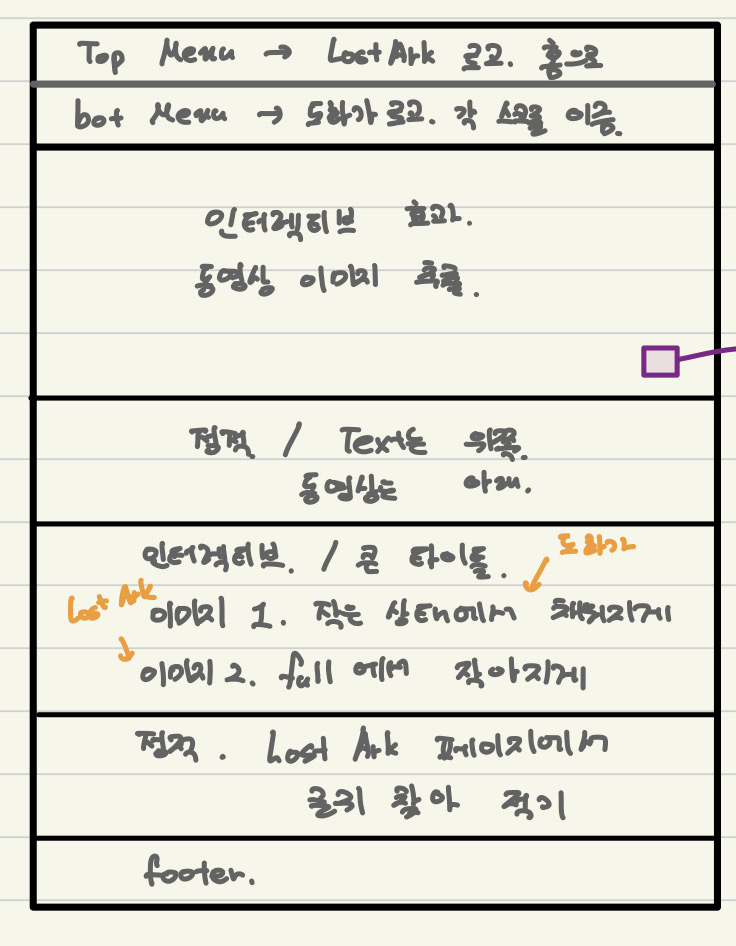 Top Menu → LostArk 로고. 홈으로
bot Menu → 도화가 로고. 각 스크롤 이름.
인터렉티브 효과.
동영상 이미지 촤륵.
정적 / Text는 위쪽.
동영상은 아래.
인터렉티브. / 큰 타이틀.
도화가
Lost Ark
이미지 1. 작은 상태에서 채워지게
이미지 2. full 에서 작아지게
정적. Lost Ark 페이지에서
글귀 찾아 적기
footer.